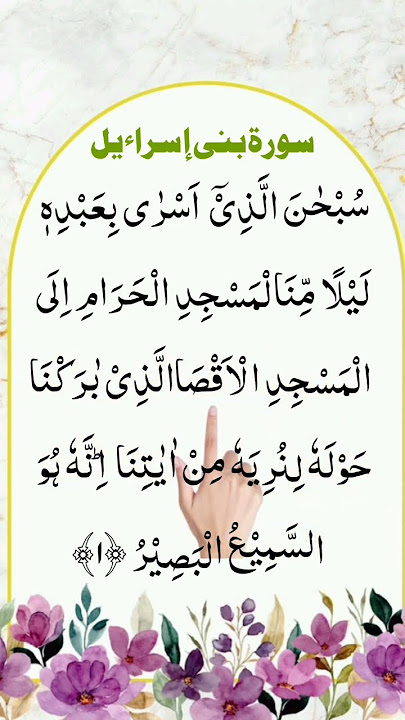 سورة بنی إسراءیل
سُبْحٰنَ الَّذِیْۤ اَسْرٰی بِعَبْدِهٖ
لَیْلًا مِّنَ الْمَسْجِدِ الْحَرَامِ اِلَی
الْمَسْجِدِ الْاَقْصَا الَّذِیْ بٰرَكْنَا
حَوْلَهٗ لِنُرِیَهٗ مِنْ اٰیٰتِنَا ؕ اِنَّهٗ هُوَ
السَّمِیْعُ الْبَصِیْرُ ﴿۱﴾